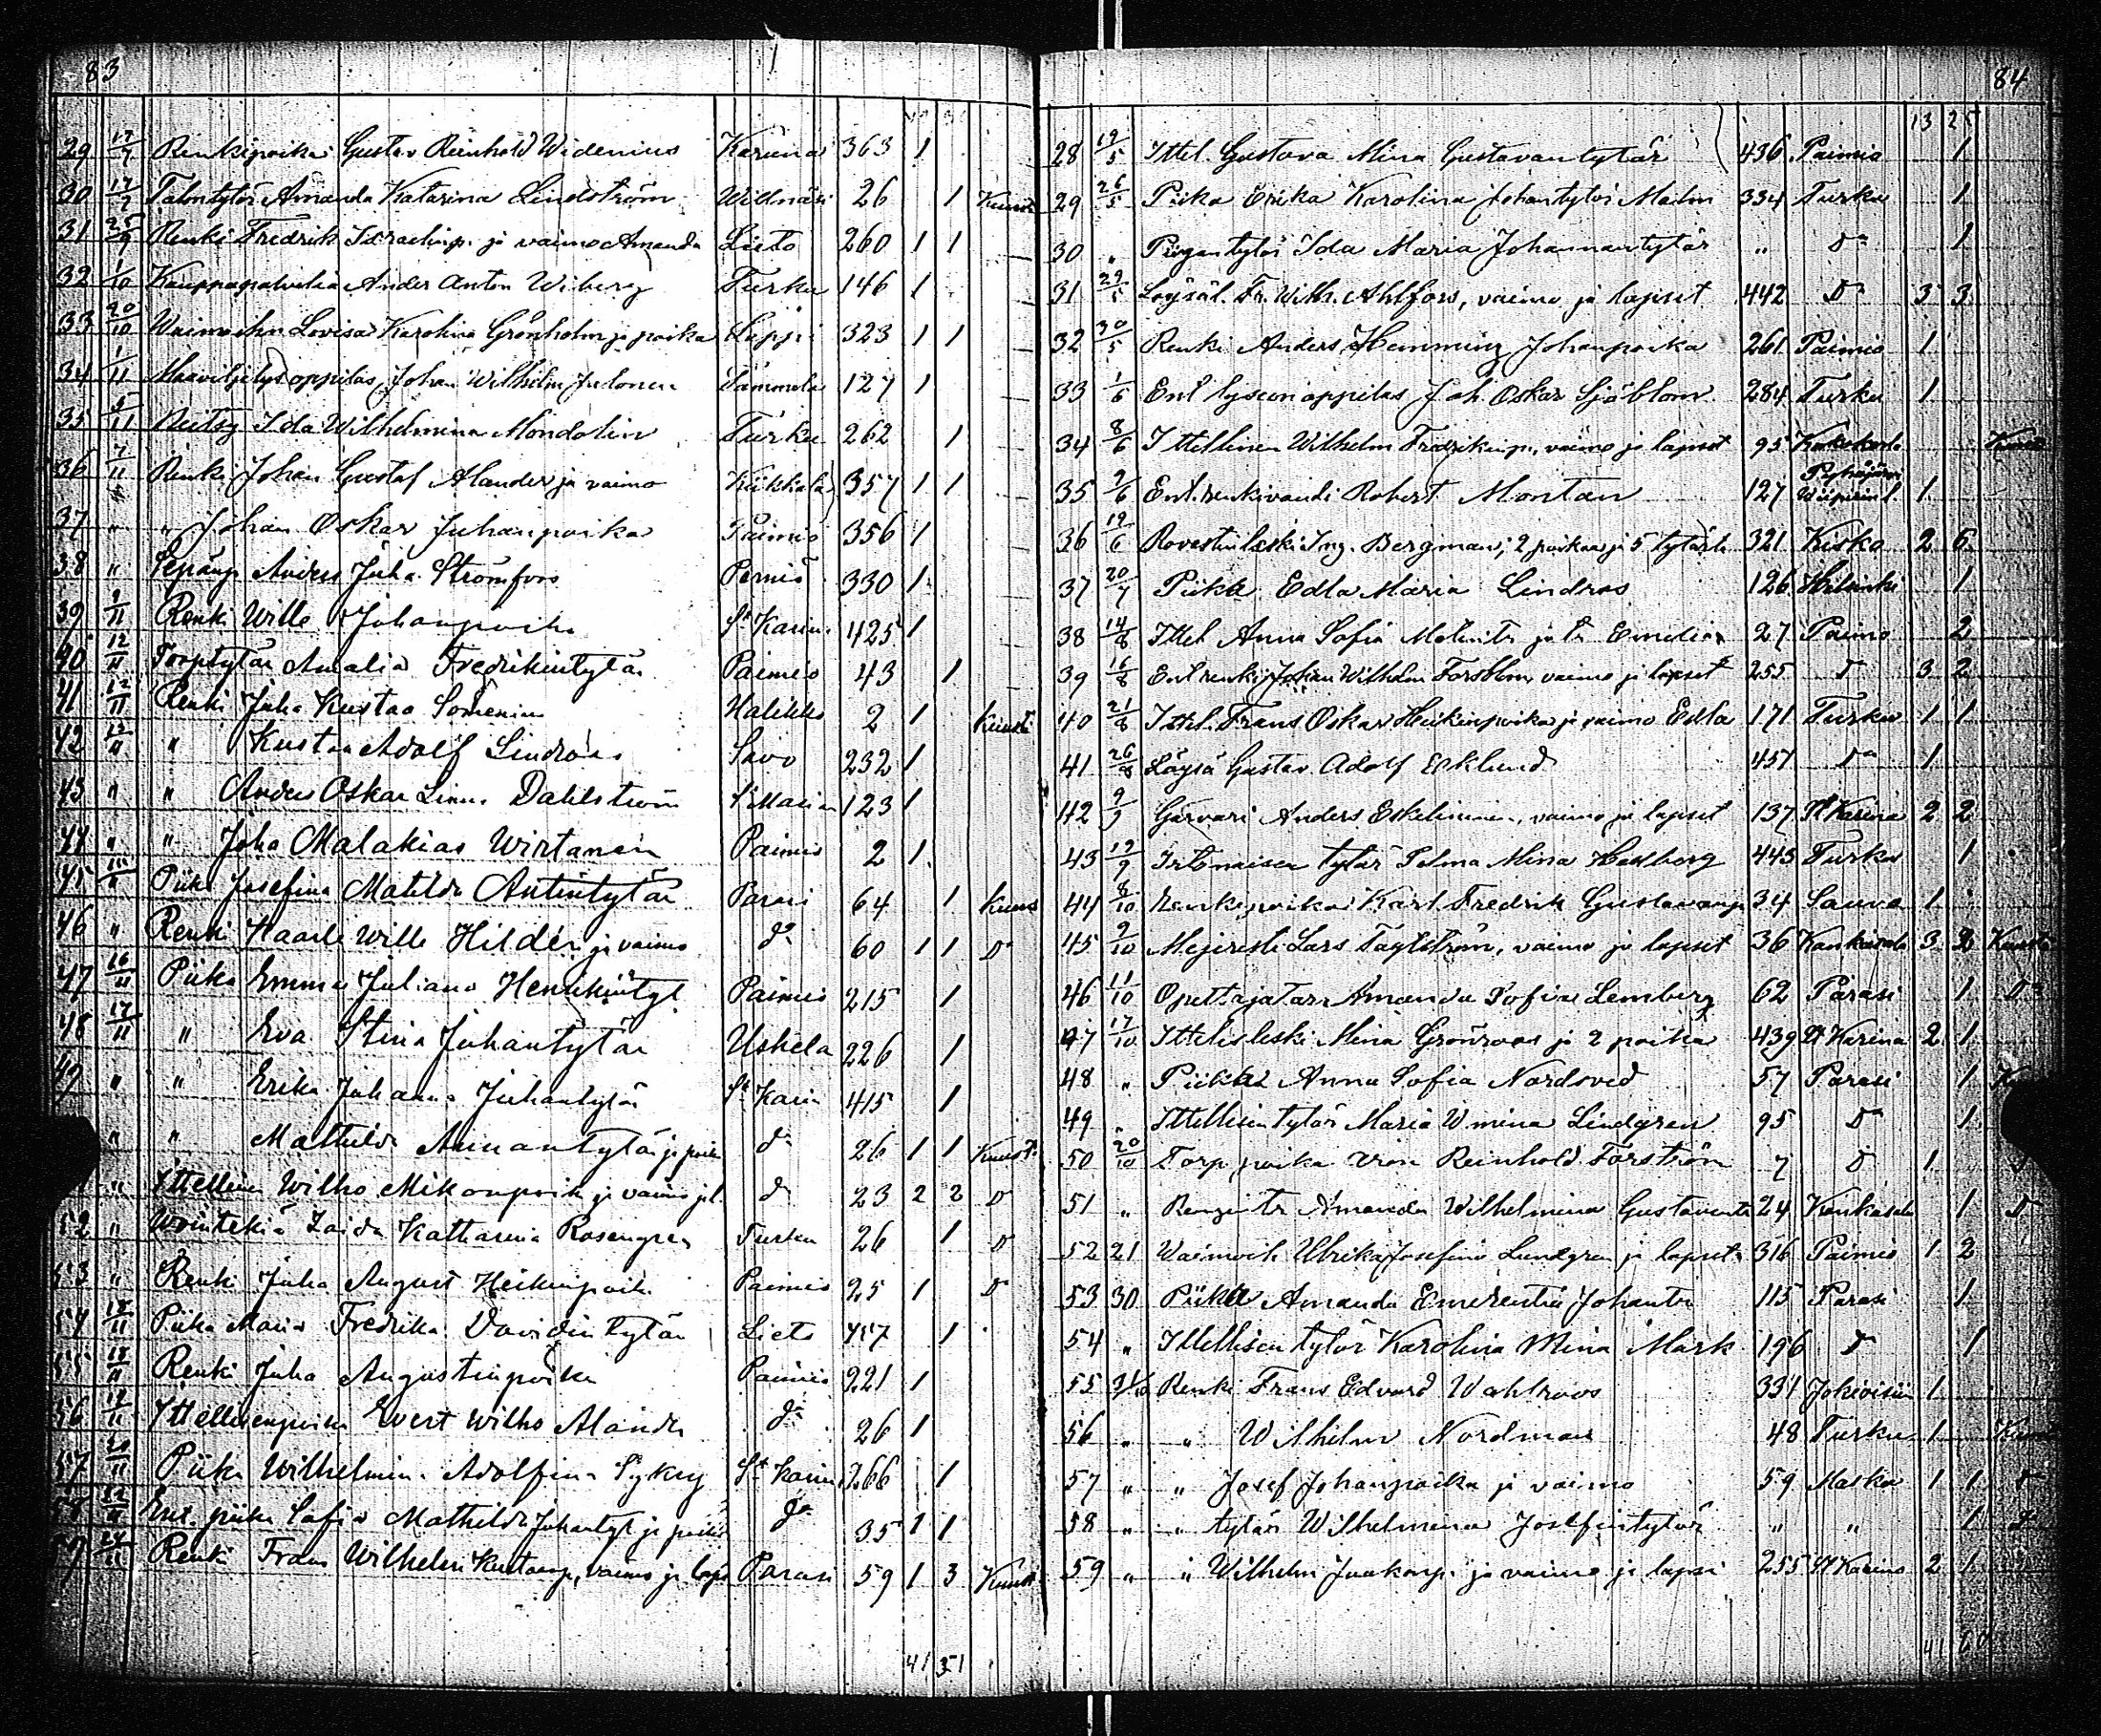 83
29 17/7 Renkipoika Gustav Reinhold Widenius Karuna 363 1
30 17/7 Amanda Katarina Lindström Willnäsi 26 1
31 25/9 Renki Fredrik Israelinp. ja vaimo Amanda Lieto 260 1 1
32 1/10 Kauppapalvelia Ander Anton Wiberg Turku 146 1
33 20/10 Waimoihm Lovisa Karolina Grönholm ja poika Lappi 323 1 1
34 1/11 Maaviljelysoppilas Johan Wilhelm Julonen Tammela 127 1
35 5/11 Ida Wilhelmina Mondolin Turku 262 1
36 7/11 Renki Johan Gustaf Alander ja vaimo Kiikkala 357 1 1
37 " " Johan Oskar Juhanpoika Paimio 356 1
38 " Sepänp Anders Juha Strömfors Perniö 330 1
39 9/11 Renki Wille Johanpoika St Karin 425 1
40 12/11 Torptytär Amalia Fredrikintytär Paimio 43 1
41 12/11 Renki Juha Kustaa Halikko 2 1
42 12/11 " Kustaa Adolf Lindroos Savo 232 1
43 " " Anders Oskar Linus Dahlström St Marian 123 1
44 " " Joha Malakias Wirtanen Paimio 2 1
45 Piika Josefina Matilda Antintytär Parais 64 1
46 " Renki Kaarle Wille Hilden ja vaimo do 60 1 1 D
47 16/11 Piika Emma Juliana Henrikintyt Paimio 215 1
48 17/11 " Eva Stina Juhantytär Uskela 226 1
49 " " Erika Johanna Juhantytär St Karin 415 1
" " Mathilda Annantytär ja poika do 26 1 1
" Ittellinen Wilho Mikonpoik ja vaimo ja l. do 23 2 2 D
52 " Zaida Katharina Rosengren Turku 26 1 D
53 " Renki Juha August Heikinpoik Paimio 25 1 D
54 18/11 Piika Maria Fredrika Davidintytär Lieto 457 1
55 18/11 Renki Juha Augustinpoika Paimio 221 1
56 18/11 Ittellisenpoika Evert Wilho Alander do 26 1
57 20/11 Piika Wilhelmina Adolfina St Karin 266 1
58 Ent. piika Sofia Mathilda Juhantyt ja poika do 35 1 1
59 24/11 Renki Frans Wilhelm Kustaanp, vaimo ja laps Parais 59 1 3
41 31
84
13 25
28 19/5 Ittel. Gustava Mina Gustavantytär 436 Paimio 1
29 26/5 Piika Erika Karolina Johantytär Malm 334 Turku 1
30 " Piigantytär Ida Maria Johannantytär " Do 1
31 29/5 Löysäl. Fr. Wilh. Ahlfors, vaimo ja lapset 442 Do 3 3
32 30/5 Renki Anders Hemming Johanpoika 261 Paimio 1
33 1/6 Ent lyseonoppilas Joh. Oskar Sjöblom 284 Turku 1
34 8/6 Ittellinen Wilhelm Fredrikinp., vaimo ja lapset 95
35 9/6 Ent. renkivouti Robert Montan 127 Pyhäjärvi Wiipurin l. 1
36 19/6 Rovestin leski Ing. Bergman, 2 poikaa ja 5 tytärtä 321 Kisko 2 6
37 20/7 Piika Edla Maria Lindros 126 Helsinki 1
38 14/8 Ittel Anna Sofia ja tr Emelia 27 Paimio 2
39 16/8 Ent renki Johan Wilhelm Forsblom vaimo ja lapset 255 D 3 2
40 21/8 Ittel. Frans Oskar Heikinpoika ja vaimo Edla 171 Turku 1 1
41 26/8 Löysä Gustav Adolf Ecklund 457 Do 1
42 9/9 Garvari Anders Eskelinen, vaimo ja lapset 137 St Karina 2 2
43 12/9 Irtonaisen tytär Selma Mina Hedberg 443 Turku 1
44 8/10 Renkipoika Karl Fredrik Gustavanp 34 Sauvo 1
45 9/10 Mejeristi Lars Täglström, vaimo ja lapset 36 Kankasala 3 2
46 11/10 Opettajatar Amanda Sofia Lemberg 62 Parais 1 Do
47 17/10 Ittelisleski Mina Grönroos ja 2 poika 439 St Karina 2 1
48 " Piika Anna Sofia Nordsved 57 Parais 1
49 " Ittellisentytär Maria Wmina Lindgren 95 D 1
50 20/10 Torp. poika Reinhold Forström 7 D 1
51 " Rengintr Amanda Wilhelmina Gustavantr 24 Kankasala 1 D
52 21 Waimoih Ulrika Josefina Lundgren ja lapset 316 Paimio 1 2
53 30 Piika Amanda Emerentia Johantr 115 Parais 1
54 " Ittellisen tytär Karolina Mina Mark 196 D 1
55 Renki Frans Edvard Wahlroos 331 Jokioisiin 1
56 " " Wilhelm Nordman 48 Turku 1
57 " " Josef Johanpoika ja vaimo 59 Masku 1 1 D
58 " " tytär Wilhelmina Josefintytär " " 1
59 " " Wilhelm Jaakonp. ja vaimo ja lapsi 255 St Karins 2 1
41